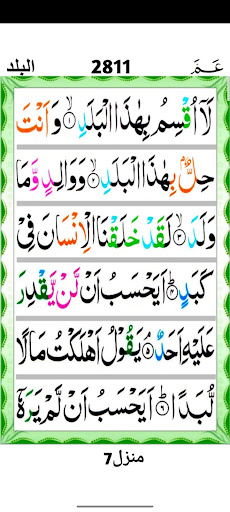 البلد 2811 عَمَّ
لَاۤ اُقْسِمُ بِهٰذَا الْبَلَدِ ۙ﴿۱﴾ وَاَنْتَ
حِلٌّۢ بِهٰذَا الْبَلَدِ ۙ﴿۲﴾ وَوَالِدٍ وَّمَا
وَلَدَ ۙ﴿۳﴾ لَقَدْ خَلَقْنَا الْاِنْسَانَ فِیْ
كَبَدٍ ؕ﴿۴﴾ اَیَحْسَبُ اَنْ لَّنْ یَّقْدِرَ
عَلَیْهِ اَحَدٌ ۘ﴿۵﴾ یَقُوْلُ اَهْلَكْتُ مَالًا
لُّبَدًا ؕ﴿۶﴾ اَیَحْسَبُ اَنْ لَّمْ یَرَهٗۤ
منزل7